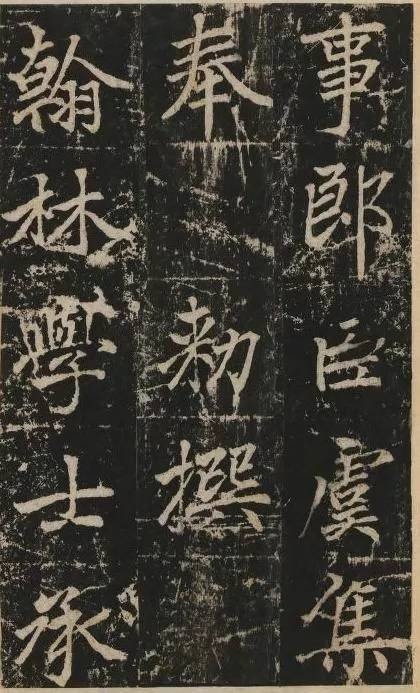 事郎臣虞集
奉敕撰
翰林學士承